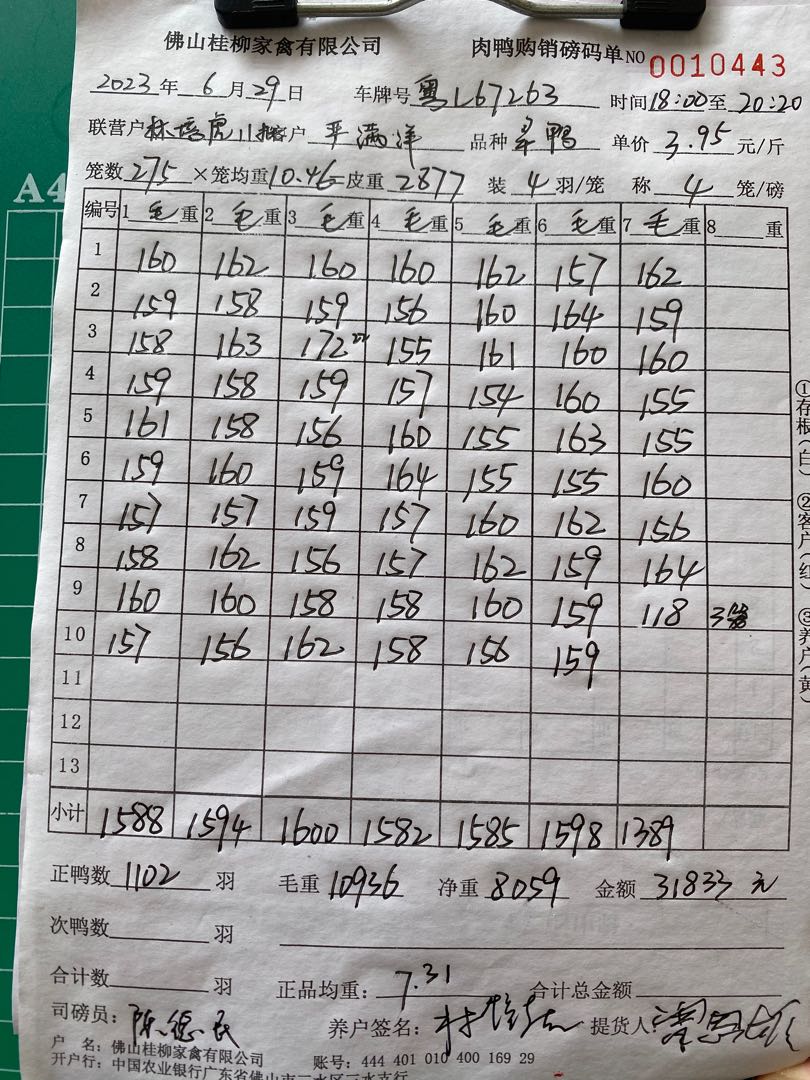 佛山桂柳家禽有限公司 肉鸭购销磅码单 NO 0010443
2023年 6月29日 车牌号 粤L67263 时间18:00至20:20
联营户 客户 平满洋 品种 鸭 单价 3.95 元/斤
笼数 275 ×笼均重 10.46 =皮重 2877 装 4 羽/笼 称 4 笼/磅
编号 1 毛 重 2 毛 重 3 毛 重 4 毛 重 5 毛 重 6 毛 重 7 毛 重 8 重
1 160 162 160 160 162 157 162
2 159 158 159 156 160 164 159
3 158 163 172 155 161 160 160
4 159 158 159 157 154 160 155
5 161 158 156 160 155 163 155
6 159 160 159 164 155 155 160
7 157 157 159 157 160 162 156
8 158 162 156 157 162 159 164
9 160 160 158 158 160 159 118 3笼
10 157 156 162 158 156 159
11
12
13
小计 1588 1594 1600 1582 1585 1598 1389
正鸭数 1102 羽 毛重 10936 净重 8059 金额 31833 元
次鸭数 羽
合计数 羽 正品均重: 7.31 合计总金额
司磅员: 陈德民 养户签名: 提货人
户 名: 佛山桂柳家禽有限公司 账号: 444 401 010 400 169 29
开户行: 中国农业银行广东省佛山市三水区三水支行
①存根(白) ②客户(红) ③养户(黄)
A4